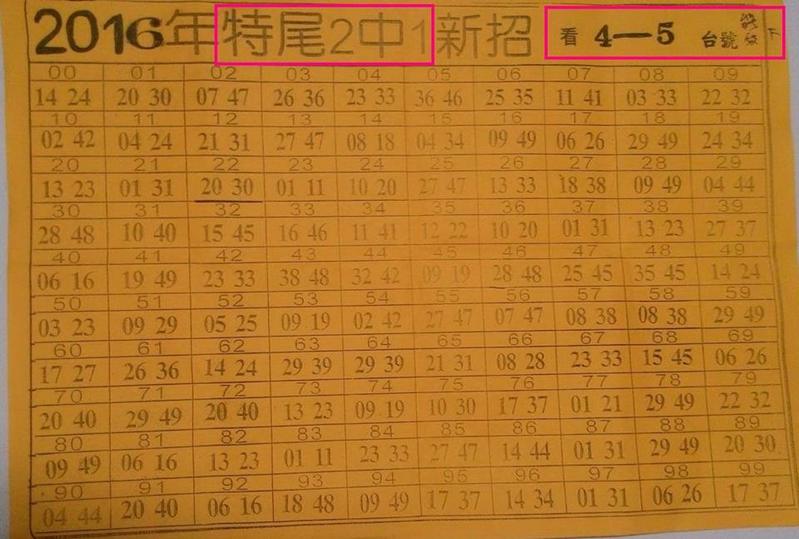 2016年特尾2中1新招 看 4—5 台號 下
00 01 02 03 04 05 06 07 08 09
14 24 20 30 07 47 26 36 23 33 36 46 25 35 11 41 03 33 22 32
10 11 12 13 14 15 16 17 18 19
02 42 04 24 21 31 27 47 08 18 04 34 09 49 06 26 29 49 24 34
20 21 22 23 24 25 26 27 28 29
13 23 01 31 20 30 01 11 10 20 27 47 13 33 18 38 09 49 04 44
30 31 32 33 34 35 36 37 38 39
28 48 10 40 15 45 16 46 11 41 12 22 10 20 01 31 13 23 27 37
40 41 42 43 44 45 46 47 48 49
06 16 19 49 23 33 38 48 32 42 09 19 28 48 25 45 35 45 14 24
50 51 52 53 54 55 56 57 58 59
03 23 09 29 05 25 09 19 02 42 27 47 07 47 08 38 08 38 29 49
60 61 62 63 64 65 66 67 68 69
17 27 26 36 14 24 29 39 29 39 21 31 08 28 23 33 15 45 06 26
70 71 72 73 74 75 76 77 78 79
20 40 29 49 20 40 13 23 09 19 10 30 17 37 01 21 29 49 22 32
80 81 82 83 84 85 86 87 88 89
09 49 06 16 13 23 01 11 23 33 27 47 14 44 01 31 29 49 20 30
90 91 92 93 94 95 96 97 98 99
04 44 20 40 06 16 18 48 09 49 17 37 14 34 01 31 06 26 17 37